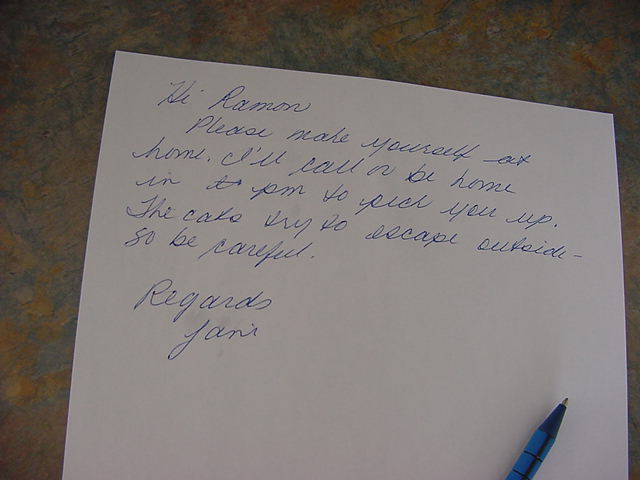 Hi Ramon
Please make yourself at
home. I'll call or be home
in pm to pick you up.
The cats try to escape outside -
so be careful.
Regards
Jani